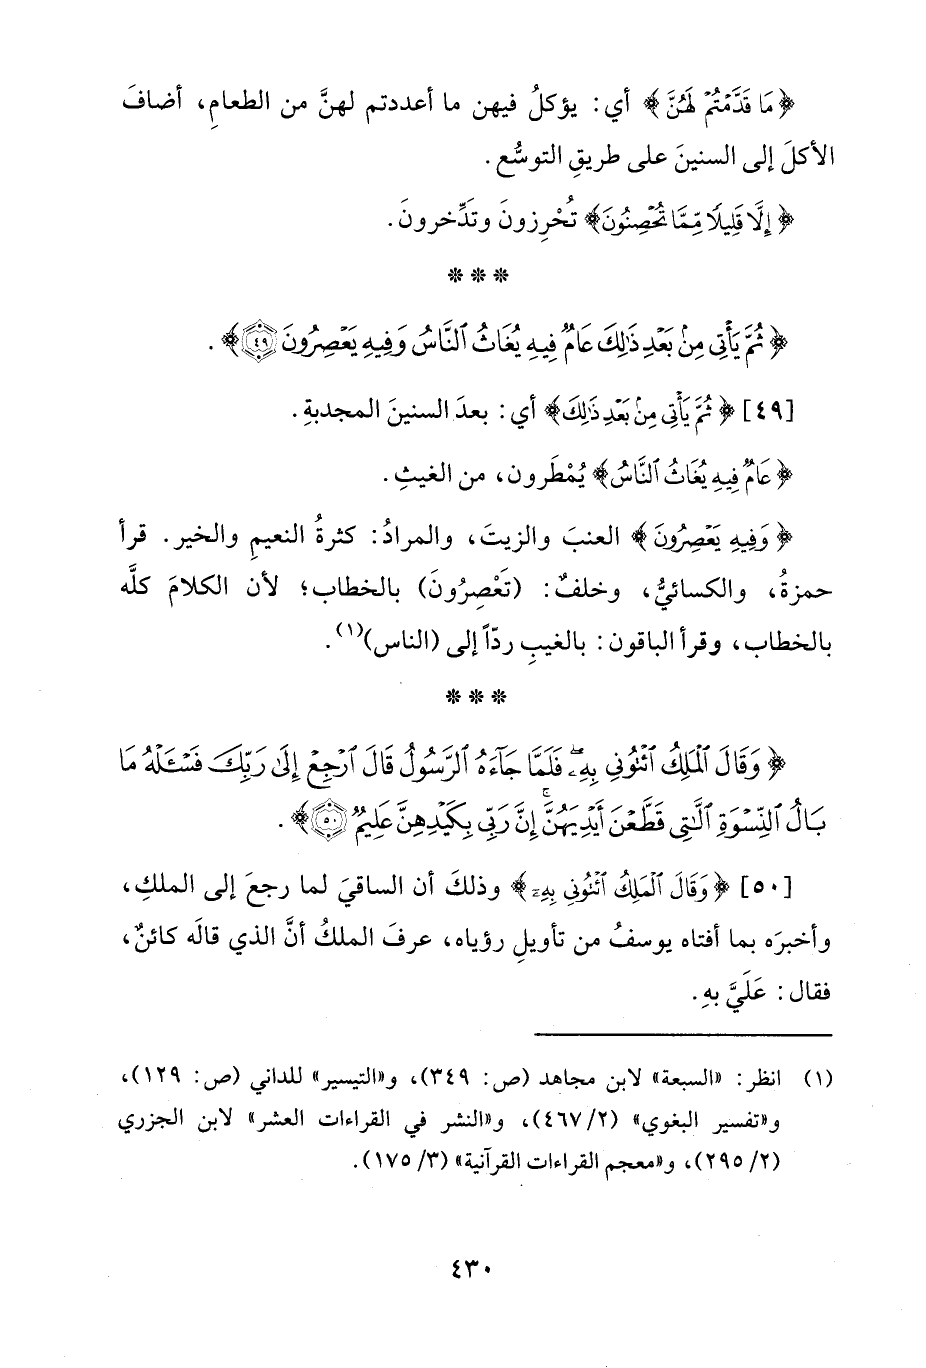 ﴿مَا قَدَّمْتُمْ لَهُنَّ﴾ أي: يؤكلُ فيهن ما أعددتم لهنَّ من الطعامِ، أضافَ
الأكلَ إلى السنينَ على طريقِ التوسُّع.
﴿إِلَّا قَلِيلًا مِّمَّا تُحْصِنُونَ﴾ تُحْرِزونَ وتَدَّخرونَ.
***
﴿ثُمَّ يَأْتِي مِنۢ بَعْدِ ذَٰلِكَ عَامٌ فِيهِ يُغَاثُ ٱلنَّاسُ وَفِيهِ يَعْصِرُونَ ٤٩﴾.
[٤٩] ﴿ثُمَّ يَأْتِي مِنۢ بَعْدِ ذَٰلِكَ﴾ أي: بعدَ السنينَ المجدبةِ.
﴿عَامٌ فِيهِ يُغَاثُ ٱلنَّاسُ﴾ يُمْطَرون، من الغيثِ.
﴿وَفِيهِ يَعْصِرُونَ﴾ العنبَ والزيتَ، والمرادُ: كثرةُ النعيمِ والخير. قرأ
حمزةُ، والكسائيُّ، وخلفٌ: (تَعْصِرُونَ) بالخطاب؛ لأن الكلامَ كلَّه
بالخطاب، وقرأ الباقون: بالغيبِ ردّاً إلى (الناس)(١).
***
﴿وَقَالَ ٱلْمَلِكُ ٱئْتُونِي بِهِۦۖ فَلَمَّا جَآءَهُ ٱلرَّسُولُ قَالَ ٱرْجِعْ إِلَىٰ رَبِّكَ فَسْـَٔلْهُ مَا
بَالُ ٱلنِّسْوَةِ ٱلَّٰتِي قَطَّعْنَ أَيْدِيَهُنَّۚ إِنَّ رَبِّي بِكَيْدِهِنَّ عَلِيمٌ ٥٠﴾.
[٥٠] ﴿وَقَالَ ٱلْمَلِكُ ٱئْتُونِي بِهِۦ﴾ وذلكَ أن الساقيَ لما رجعَ إلى الملكِ،
وأخبرَه بما أفتاه يوسفُ من تأويلِ رؤياه، عرفَ الملكُ أنَّ الذي قالَه كائنٌ،
فقال: عَلَيَّ بهِ.
(١) انظر: «السبعة» لابن مجاهد (ص: ٣٤٩)، و«التيسير» للداني (ص: ١٢٩)،
و«تفسير البغوي» (٢/ ٤٦٧)، و«النشر في القراءات العشر» لابن الجزري
(٢/ ٢٩٥)، و«معجم القراءات القرآنية» (٣/ ١٧٥).
٤٣٠